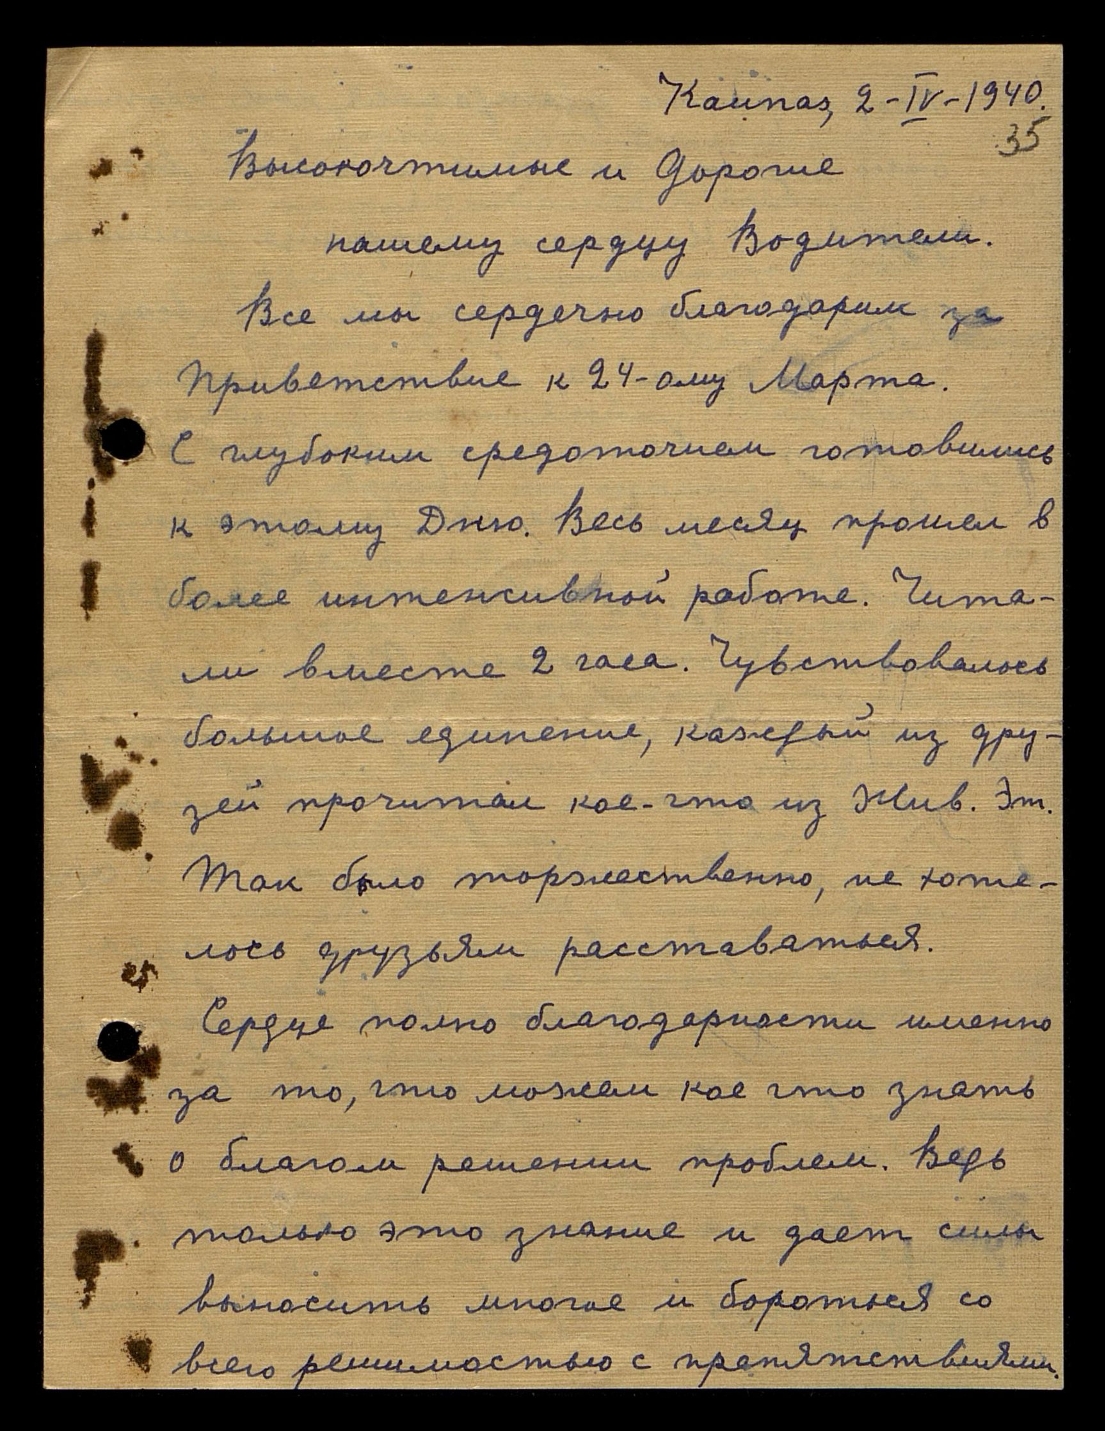 Каунас, 2-IV-1940.
35
Высокочтимые и Дорогие
нашему сердцу Водители.
Все мы сердечно благодарим за
Приветствие к 24-ому Марта.
С глубоким средоточием готовились
к этому Дню. Весь месяц прошел в
более интенсивной работе. Чита-
ли вместе 2 часа. Чувствовалось
большое единение, каждый из дру-
зей прочитал кое-что из Жив. Эт.
Так было торжественно, не хоте-
лось друзьям расставаться.
Сердце полно благодарности именно
за то, что можем кое что знать
о благом решении проблем. Ведь
только это знание и дает силы
выносить многое и бороться со
всего решимостью с препятствиями.